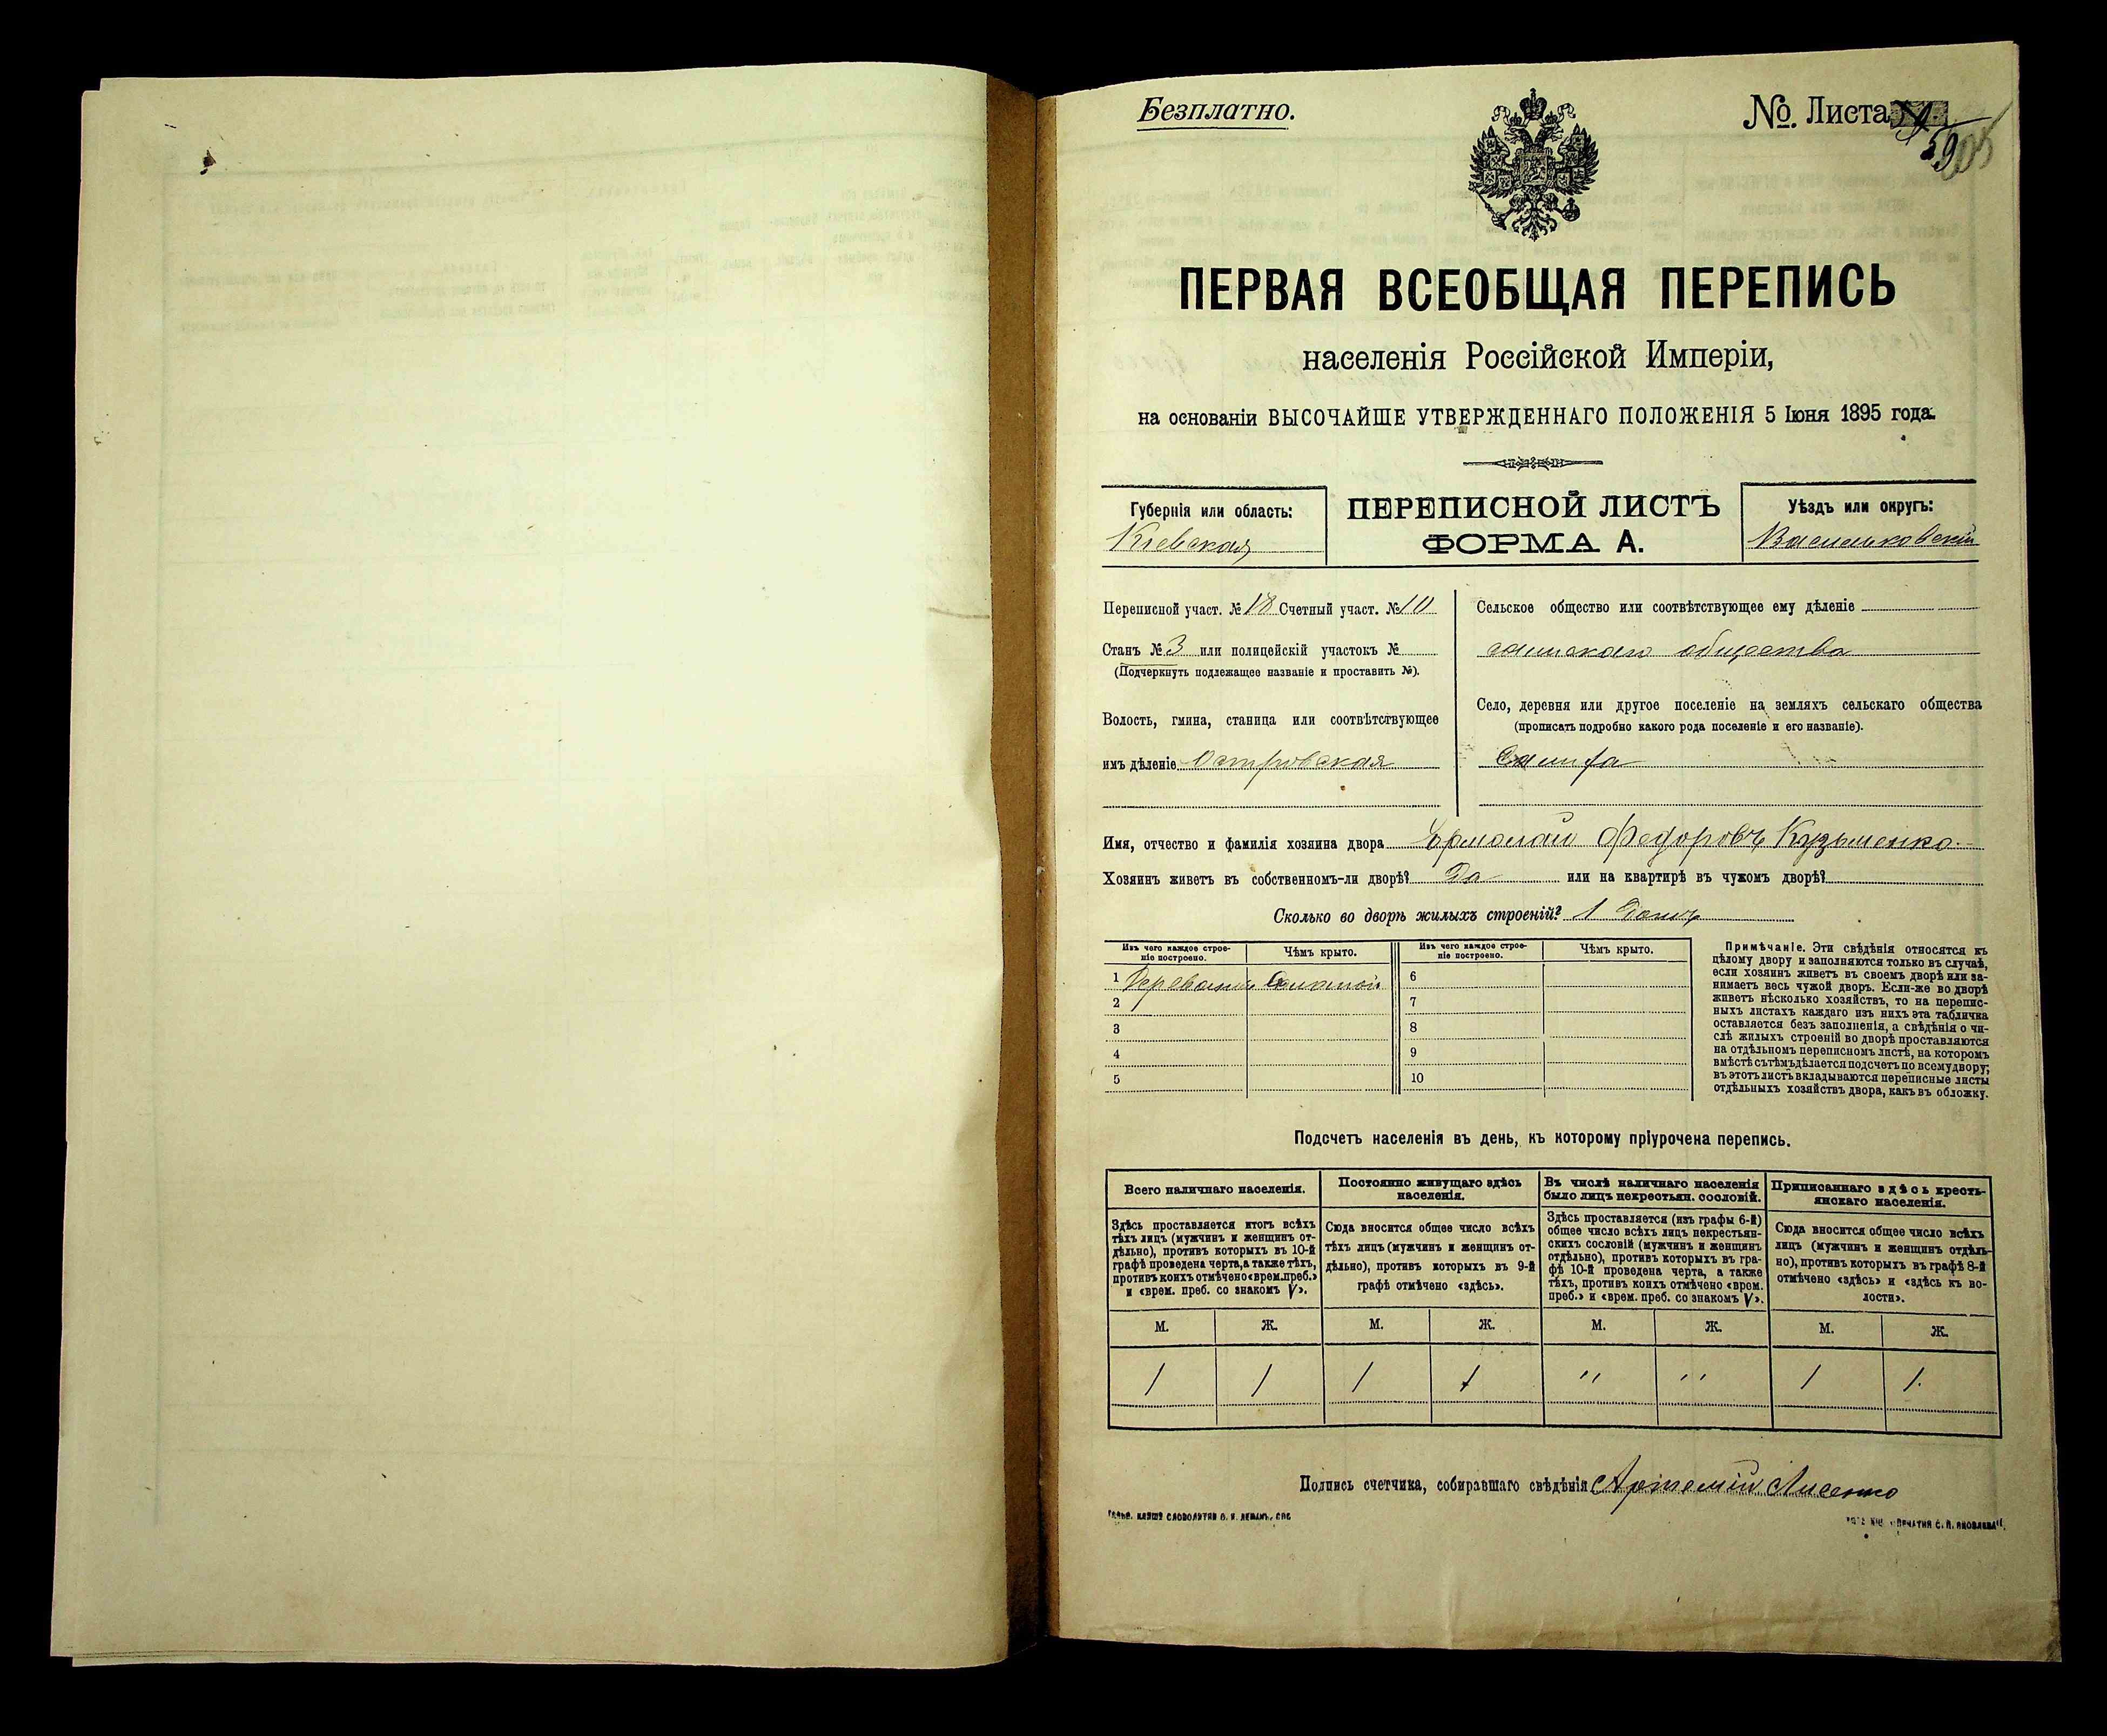 Безплатно.
№. Листа
59
ПЕРВАЯ ВСЕОБЩАЯ ПЕРЕПИСЬ
населенія Россійской Имперіи,
на основаніи ВЫСОЧАЙШЕ УТВЕРЖДЕННАГО ПОЛОЖЕНІЯ 5 Іюня 1895 года.
Губернія или область:
Кіевская
ПЕРЕПИСНОЙ ЛИСТЪ
ФОРМА А.
Уѣздъ или округъ:
Васильковскій
Переписной участ. № 18 Счетный участ. № 10
Станъ № 3 или полицейскій участокъ №
(Подчеркнуть подлежащее названіе и проставить №).
Волость, гмина, станица или соотвѣтствующее
имъ дѣленіе Островская
Сельское общество или соотвѣтствующее ему дѣленіе
общества
Село, деревня или другое поселеніе на земляхъ сельскаго общества
(прописать подробно какого рода поселеніе и его названіе).
Имя, отчество и фамилія хозяина двора Ермолай Федоровъ Кузьменко
Хозяинъ живетъ въ собственномъ-ли дворѣ? Да или на квартирѣ въ чужомъ дворѣ?
Сколько во дворѣ жилыхъ строеній? 1 Домъ
Изъ чего каждое строе-
ніе построено.
Чѣмъ крыто.
Изъ чего каждое строе-
ніе построено.
Чѣмъ крыто.
1 Соломой 6
2 7
3 8
4 9
5 10
Примѣчаніе. Эти свѣдѣнія относятся къ
цѣлому двору и заполняются только въ случаѣ,
если хозяинъ живетъ въ своемъ дворѣ или за-
нимаетъ весь чужой дворъ. Если-же во дворѣ
живетъ нѣсколько хозяйствъ, то на перепис-
ныхъ листахъ каждаго изъ нихъ эта табличка
оставляется безъ заполненія, а свѣдѣнія о чи-
слѣ жилыхъ строеній во дворѣ проставляются
на отдѣльномъ переписномъ листѣ, на которомъ
вмѣстѣ съ тѣмъ дѣлается подсчетъ по всему двору;
въ этотъ листъ вкладываются переписные листы
отдѣльныхъ хозяйствъ двора, какъ въ обложку.
Подсчетъ населенія въ день, къ которому пріурочена перепись.
Всего наличнаго населенія.
Здѣсь проставляется итогъ всѣхъ
тѣхъ лицъ (мужчинъ и женщинъ от-
дѣльно), противъ которыхъ въ 10-й
графѣ проведена черта, а также тѣхъ,
противъ коихъ отмѣчено «врем. преб.»
и «врем. преб. со знакомъ V».
Постоянно живущаго здѣсь
населенія.
Сюда вносится общее число всѣхъ
тѣхъ лицъ (мужчинъ и женщинъ от-
дѣльно), противъ которыхъ въ 9-й
графѣ отмѣчено «здѣсь».
Въ числѣ наличнаго населенія
было лицъ некрестьян. сословій.
Здѣсь проставляется (изъ графы 6-й)
общее число всѣхъ лицъ некрестьян-
скихъ сословій (мужчинъ и женщинъ
отдѣльно), противъ которыхъ въ гра-
фѣ 10-й проведена черта, а также
тѣхъ, противъ коихъ отмѣчено «врем.
преб.» и «врем. преб. со знакомъ V».
Приписаннаго здѣсь кресть-
янскаго населенія.
Сюда вносится общее число всѣхъ
лицъ (мужчинъ и женщинъ отдѣль-
но), противъ которыхъ въ графѣ 8-й
отмѣчено «здѣсь» и «здѣсь къ во-
лости».
М. Ж. М. Ж. М. Ж. М. Ж.
1 1 1 1 " " 1 1.
Подпись счетчика, собиравшаго свѣдѣнія Артемій Лисенко